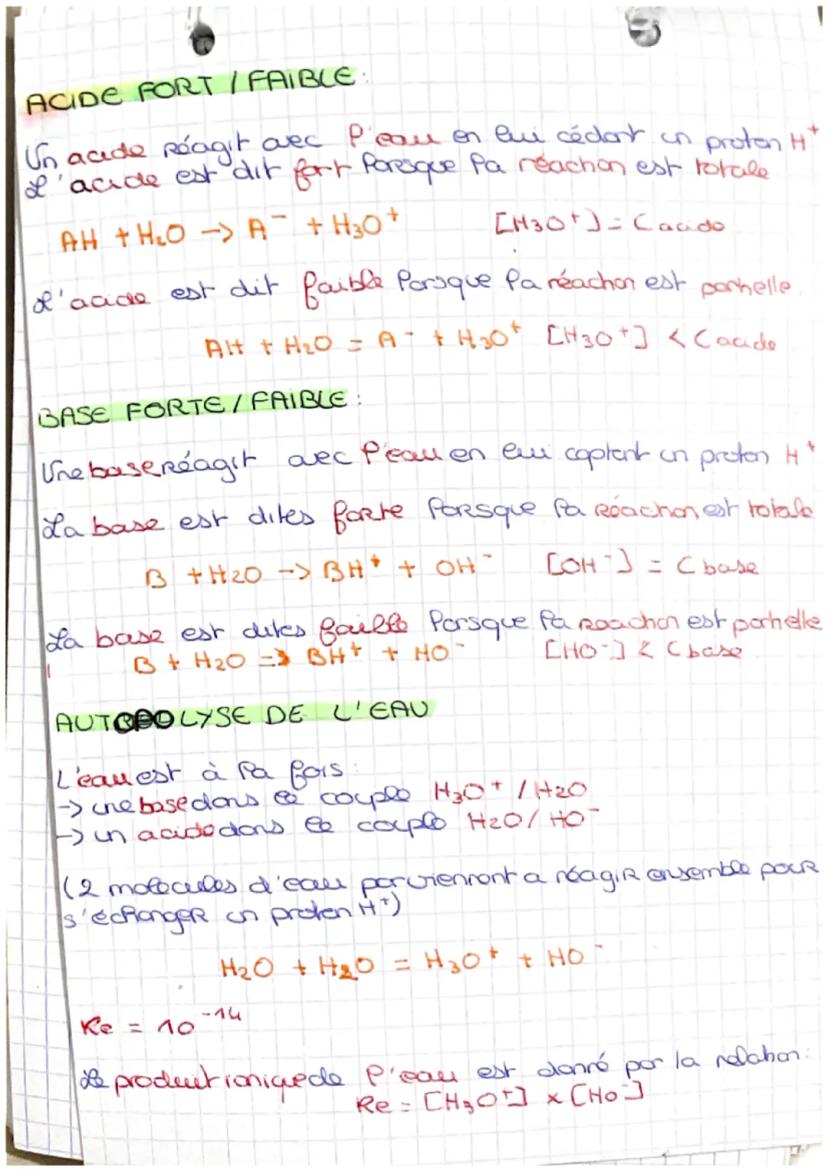 ACIDE FORT / FAIBLE :
Un acide réagit avec l'eau en lui cédant un proton H⁺
L'acide est dit fort lorsque la réaction est totale
AH + H₂O -> A⁻ + H₃O⁺ [H₃O⁺] = C acide
L'acide est dit faible lorsque la réaction est partielle.
AH + H₂O = A⁻ + H₃O⁺ [H₃O⁺] < C acide
BASE FORTE / FAIBLE :
Une base réagit avec l'eau en lui captant un proton H⁺
La base est dites forte lorsque la réaction est totale
B + H₂O -> BH⁺ + OH⁻ [OH⁻] = C base
La base est dites faible lorsque la réaction est partielle
B + H₂O => BH⁺ + HO⁻ [HO⁻] < C base
AUTOPOLYSE DE L'EAU
L'eau est à la fois :
-> une base dans le couple H₃O⁺ / H₂O
-> un acide dans le couple H₂O / HO⁻
(2 molécules d'eau parviennent a réagir ensemble pour
s'échanger un proton H⁺)
H₂O + H₂O = H₃O⁺ + HO⁻
Ke = 10⁻¹⁴
Le produit ionique de l'eau est donné par la relation :
Ke = [H₃O⁺] x [HO⁻]